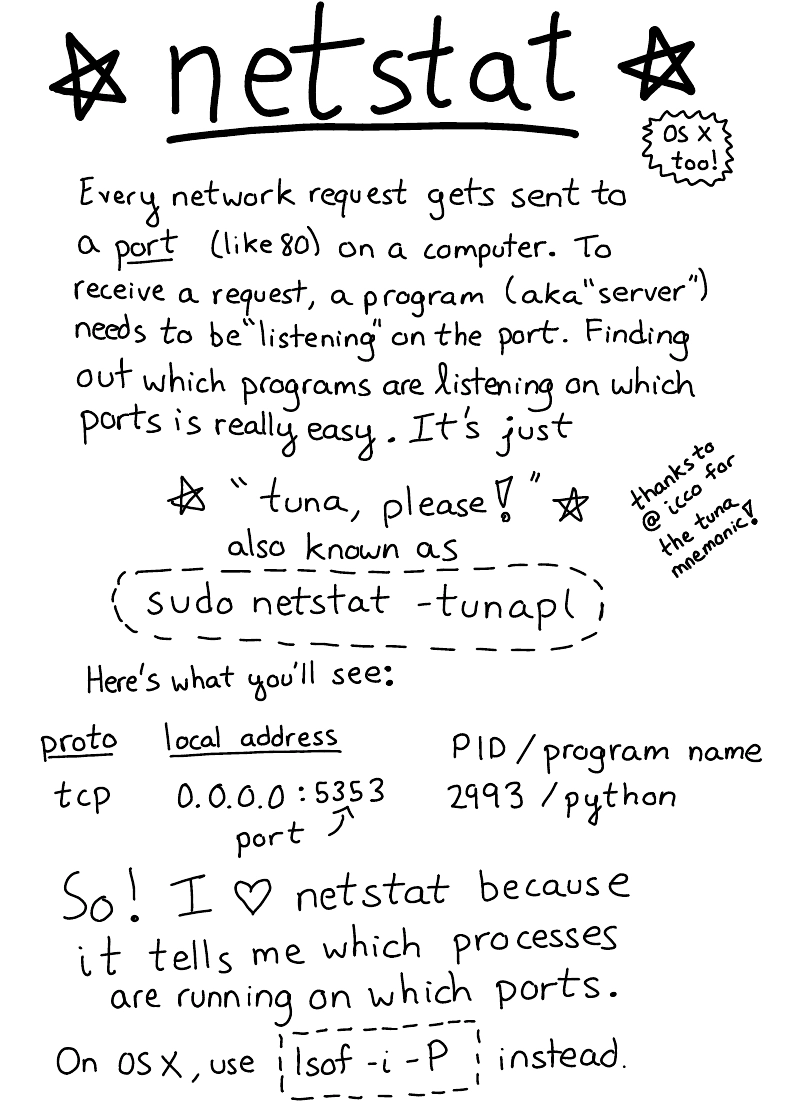 netstat
OS X
too!
Every network request gets sent to
a port (like 80) on a computer. To
receive a request, a program (aka "server")
needs to be "listening" on the port. Finding
out which programs are listening on which
ports is really easy. It's just
"tuna, please!"
also known as
thanks to
@icco for
the tuna
mnemonic!
sudo netstat -tunapl
Here's what you'll see:
proto local address PID/program name
tcp 0.0.0.0:5353 2993/python
port
So! I ♡ netstat because
it tells me which processes
are running on which ports.
On OS X, use lsof -i -P instead.